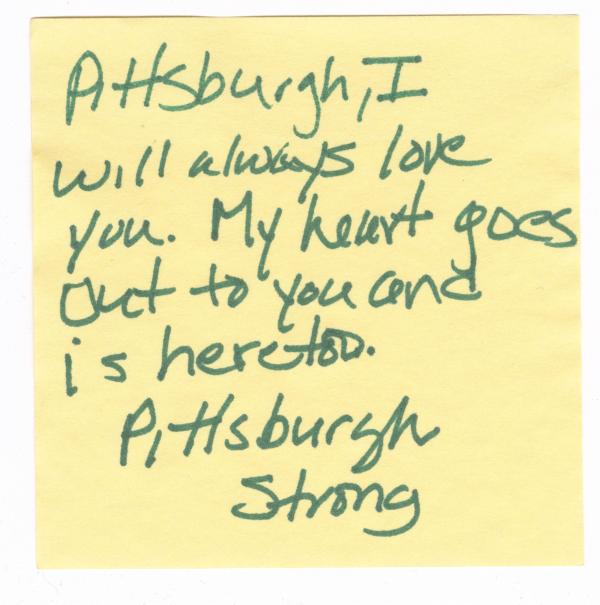 Pittsburgh, I
will always love
you. My heart goes
out to you and
is here too.
Pittsburgh
Strong